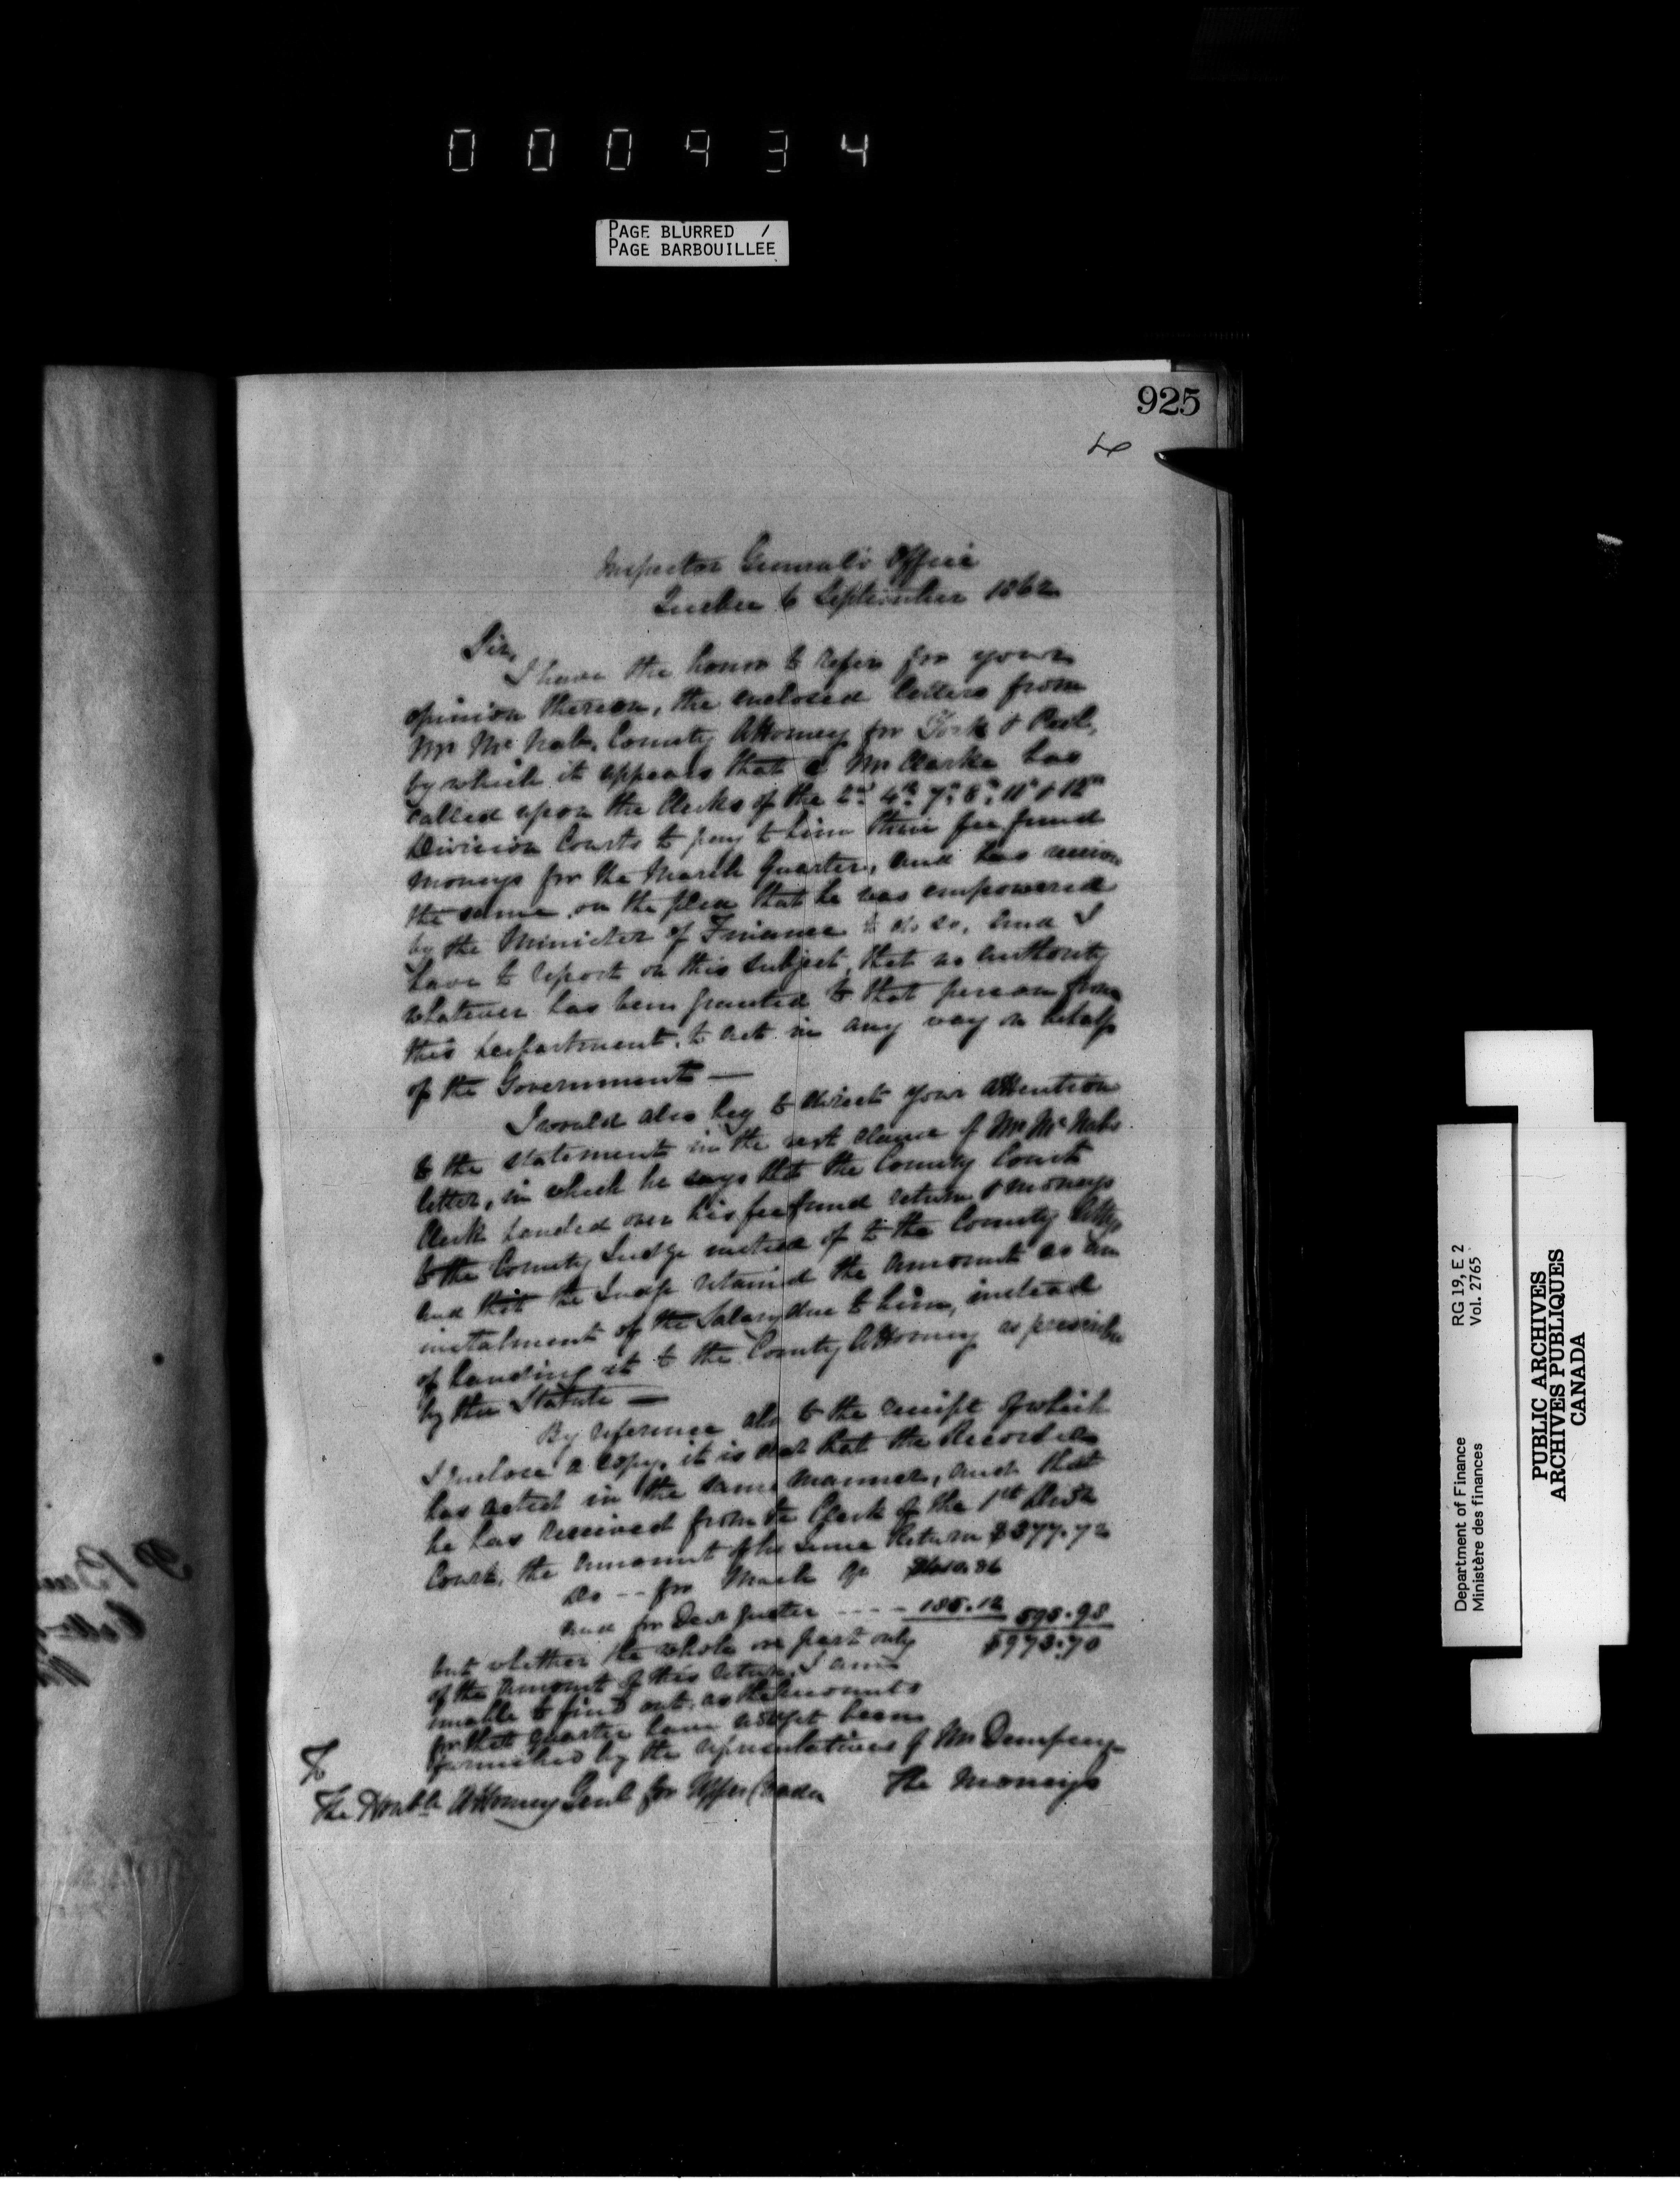 000934
PAGE BLURRED /
PAGE BARBOUILLEE
925
Inspector General's Office
Quebec 6 September 1862
Sir,
I have the honor to refer for your
opinion thereon, the enclosed letters from
Mr McNab, County Attorney for York & Peel,
by which it appears that a Mr Clarke has
called upon the Clerks of the 2nd 4th 7th 8th 11th & 12th
Division Courts to pay to him their fee fund
moneys for the March Quarter, and has
the same on the plea that he was empowered
by the Minister of Finance to do so, and I
have to report on this subject, that no authority
whatever has been granted to that person from
this department, to act in any way on behalf
of the Government —
I would also beg to direct your attention
to the statement in the next clause of Mr McNabs
letter, in which he says that the County Court
Clerk handed over his fee fund return & moneys
to the County Judge instead of to the County Atty,
and that the Judge retained the amount as an
instalment of the Salary due to him, instead
of handing it to the County Attorney as
by the Statute —
By reference also to the receipt of which
I enclose a copy, it is that the Recorder
has acted in the same manner, and that
he has received from the Clerk of the 1st
Court, the amount of his June Return $377.72
do -- for March Qr
and for Decr quarter ---- 185.12 595.98
$973.70
but whether the whole or part only
of the amount of this return, I am
unable to find out, as the accounts
for that quarter have not yet been
furnished by the representatives of Mr Dempsey—
The Honble Attorney Genl for Upper Canada
The moneys
Department of Finance RG 19, E 2
Ministère des finances Vol. 2765
PUBLIC ARCHIVES
ARCHIVES PUBLIQUES
CANADA